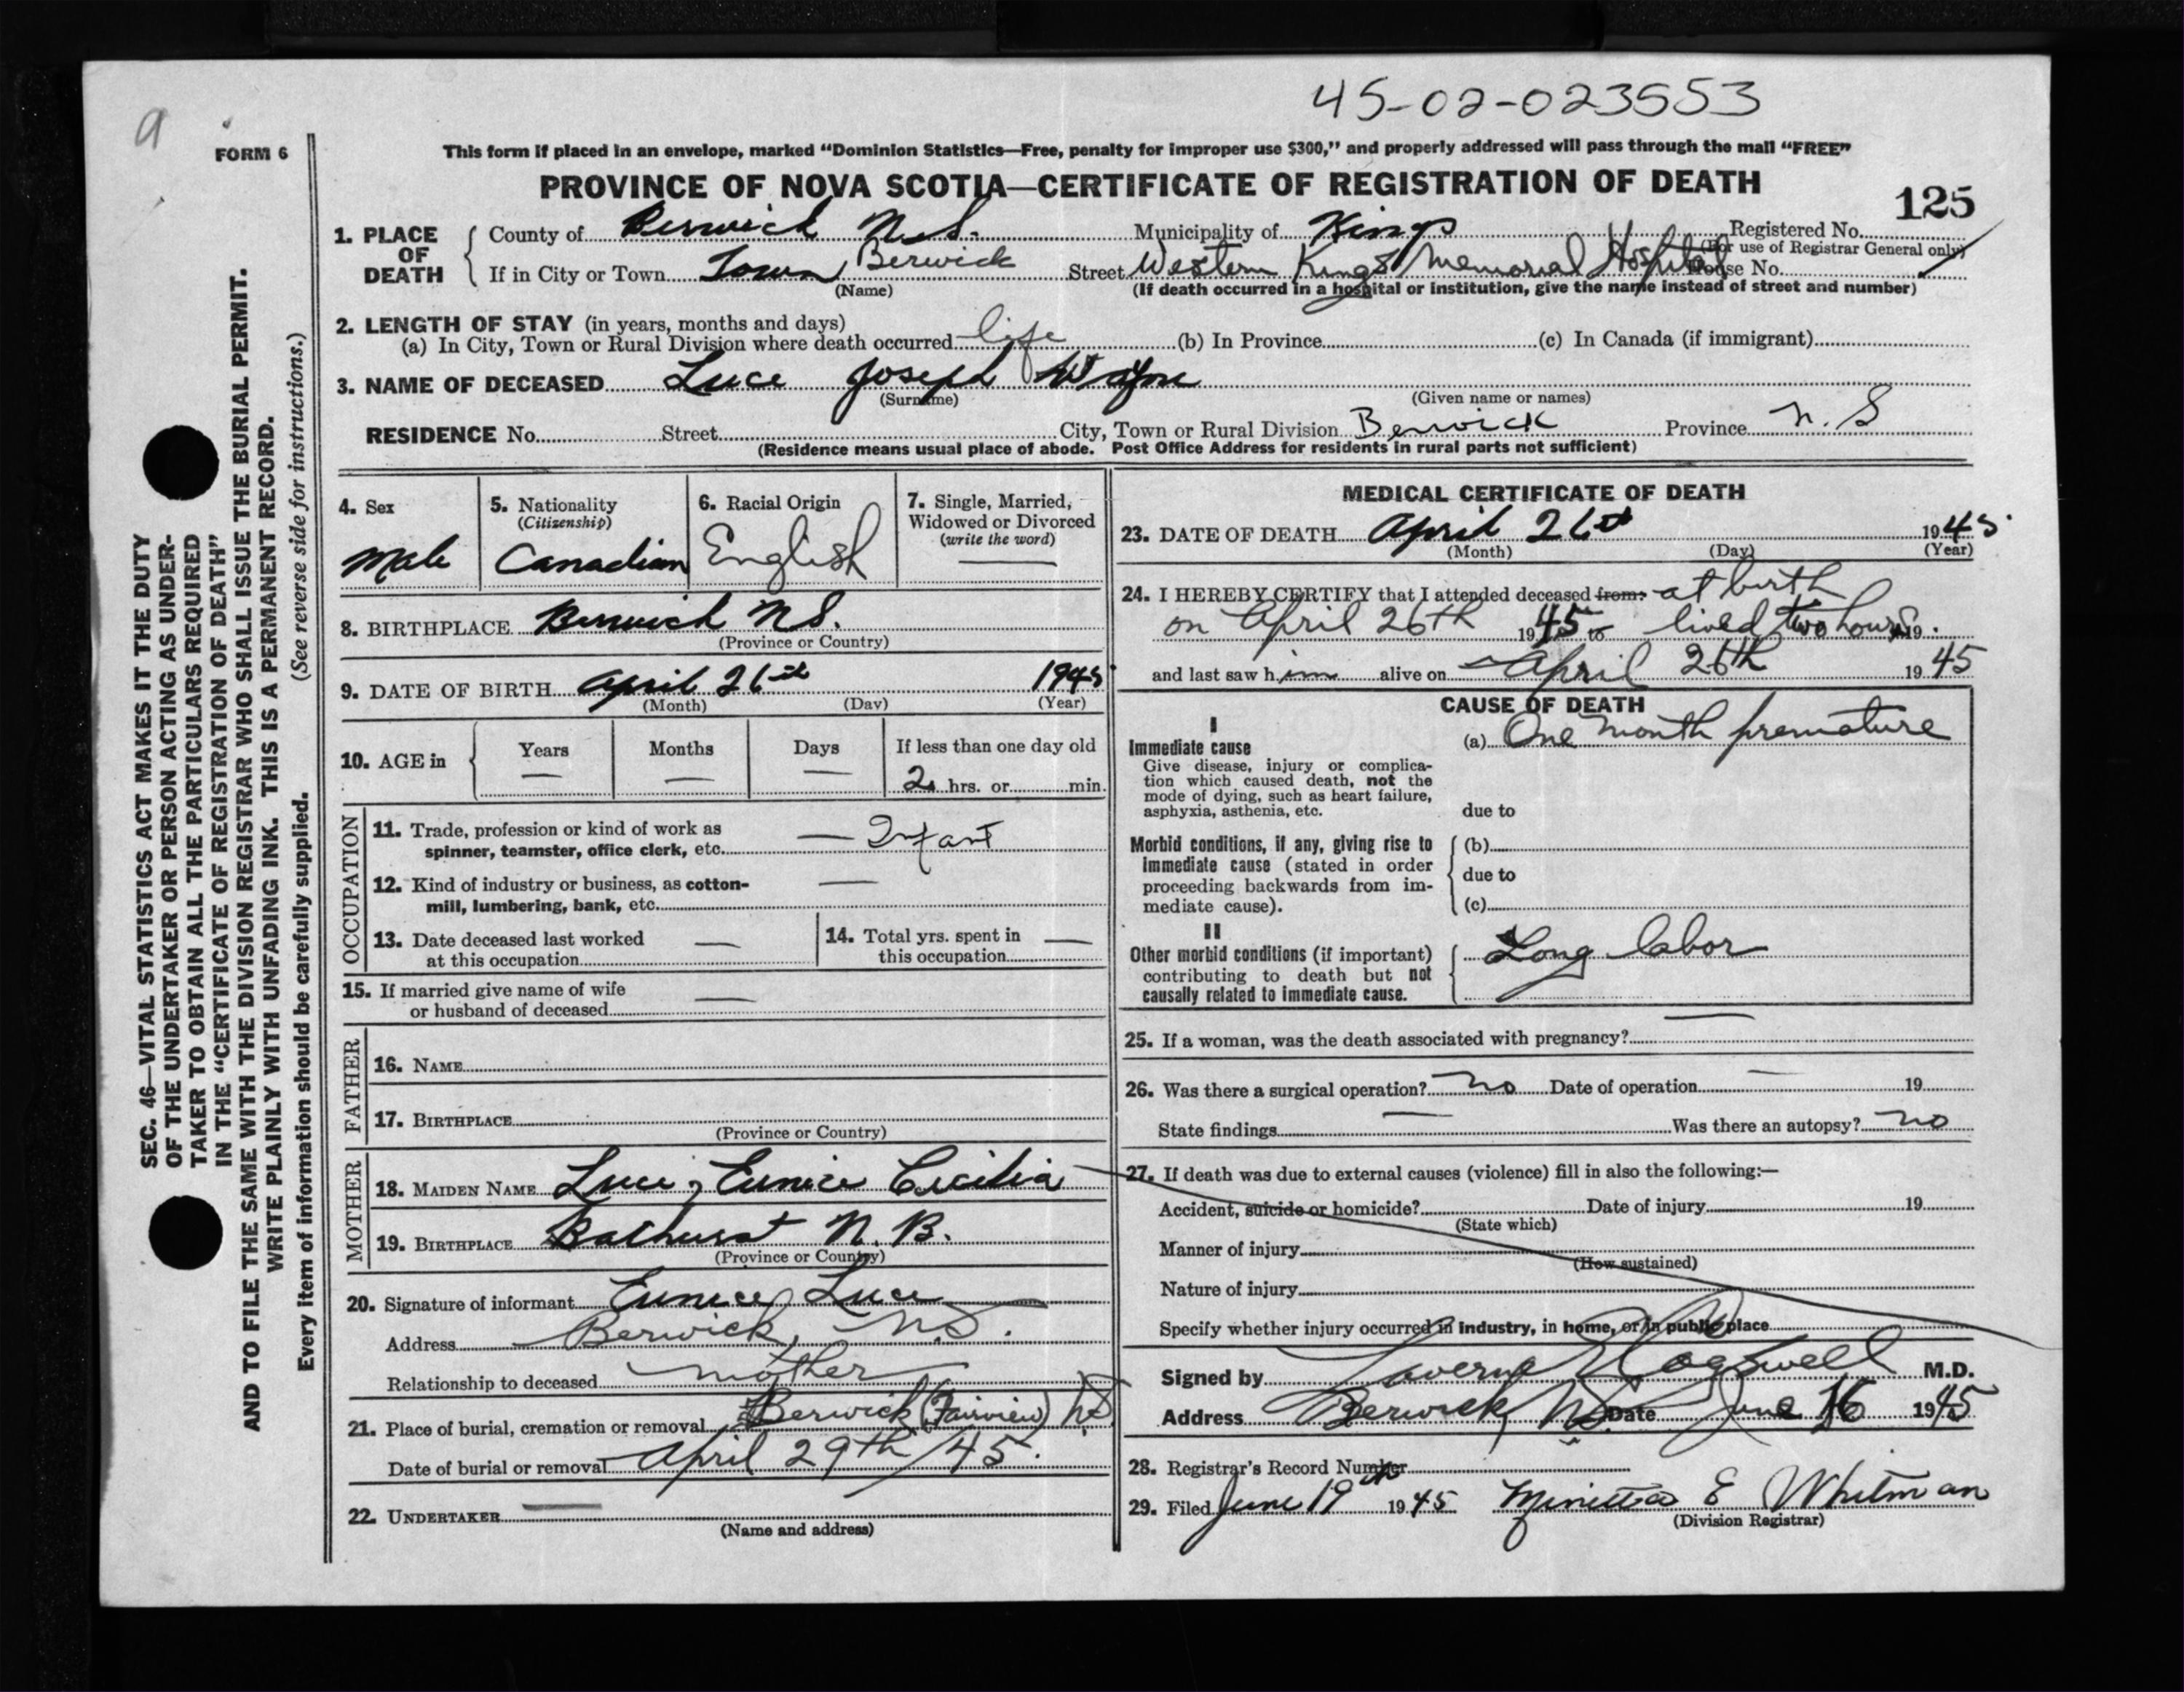 45-02-023553
a
FORM 6
This form if placed in an envelope, marked "Dominion Statistics—Free, penalty for improper use $300," and properly addressed will pass through the mail "FREE"
PROVINCE OF NOVA SCOTIA—CERTIFICATE OF REGISTRATION OF DEATH
125
1. PLACE OF DEATH County of Berwick N.S. Municipality of Kings Registered No.
(For use of Registrar General only)
If in City or Town Town Berwick Street Western Kings Memorial Hospital House No.
(Name) (If death occurred in a hospital or institution, give the name instead of street and number)
2. LENGTH OF STAY (in years, months and days)
(a) In City, Town or Rural Division where death occurred life (b) In Province (c) In Canada (if immigrant)
3. NAME OF DECEASED Luce Joseph Wayne
(Surname) (Given name or names)
RESIDENCE No. Street City, Town or Rural Division Berwick Province N.S
(Residence means usual place of abode. Post Office Address for residents in rural parts not sufficient)
4. Sex
Male
5. Nationality
(Citizenship)
Canadian
6. Racial Origin
English
7. Single, Married,
Widowed or Divorced
(write the word)
—
8. BIRTHPLACE Berwick N.S.
(Province or Country)
9. DATE OF BIRTH April 26th 1945
(Month) (Day) (Year)
10. AGE in Years Months Days If less than one day old
— — — 2 hrs. or min.
OCCUPATION
11. Trade, profession or kind of work as
spinner, teamster, office clerk, etc. — Infant
12. Kind of industry or business, as cotton-
mill, lumbering, bank, etc. —
13. Date deceased last worked
at this occupation —
14. Total yrs. spent in
this occupation —
15. If married give name of wife
or husband of deceased —
FATHER
16. NAME
17. BIRTHPLACE
(Province or Country)
MOTHER
18. MAIDEN NAME Luce, Eunice Cecilia
19. BIRTHPLACE Bathurst N.B.
(Province or Country)
20. Signature of informant Eunice Luce
Address Berwick, N.S.
Relationship to deceased mother
21. Place of burial, cremation or removal Berwick (Fairview) N.S.
Date of burial or removal April 29th/45.
22. UNDERTAKER —
(Name and address)
MEDICAL CERTIFICATE OF DEATH
23. DATE OF DEATH April 26th 1945.
(Month) (Day) (Year)
24. I HEREBY CERTIFY that I attended deceased from: at birth
on April 26th 1945 to lived two hours 19.
and last saw him alive on April 26th 1945
CAUSE OF DEATH
I
Immediate cause
Give disease, injury or complica-
tion which caused death, not the
mode of dying, such as heart failure,
asphyxia, asthenia, etc.
(a) One month premature
due to
Morbid conditions, if any, giving rise to
immediate cause (stated in order
proceeding backwards from im-
mediate cause).
(b)
due to
(c)
II
Other morbid conditions (if important)
contributing to death but not
causally related to immediate cause.
Long labor
25. If a woman, was the death associated with pregnancy? —
26. Was there a surgical operation? no Date of operation — 19
State findings — Was there an autopsy? no
27. If death was due to external causes (violence) fill in also the following:—
Accident, suicide or homicide? Date of injury 19
(State which)
Manner of injury
(How sustained)
Nature of injury
Specify whether injury occurred in industry, in home, or in public place
Signed by Cogswell M.D.
Address Berwick, N.S. Date June 16 1945
28. Registrar's Record Number
29. Filed June 19th 1945 Minetta E Whitman
(Division Registrar)
SEC. 46—VITAL STATISTICS ACT MAKES IT THE DUTY
OF THE UNDERTAKER OR PERSON ACTING AS UNDER-
TAKER TO OBTAIN ALL THE PARTICULARS REQUIRED
IN THE "CERTIFICATE OF REGISTRATION OF DEATH"
AND TO FILE THE SAME WITH THE DIVISION REGISTRAR WHO SHALL ISSUE THE BURIAL PERMIT.
WRITE PLAINLY WITH UNFADING INK. THIS IS A PERMANENT RECORD.
Every item of information should be carefully supplied. (See reverse side for instructions.)